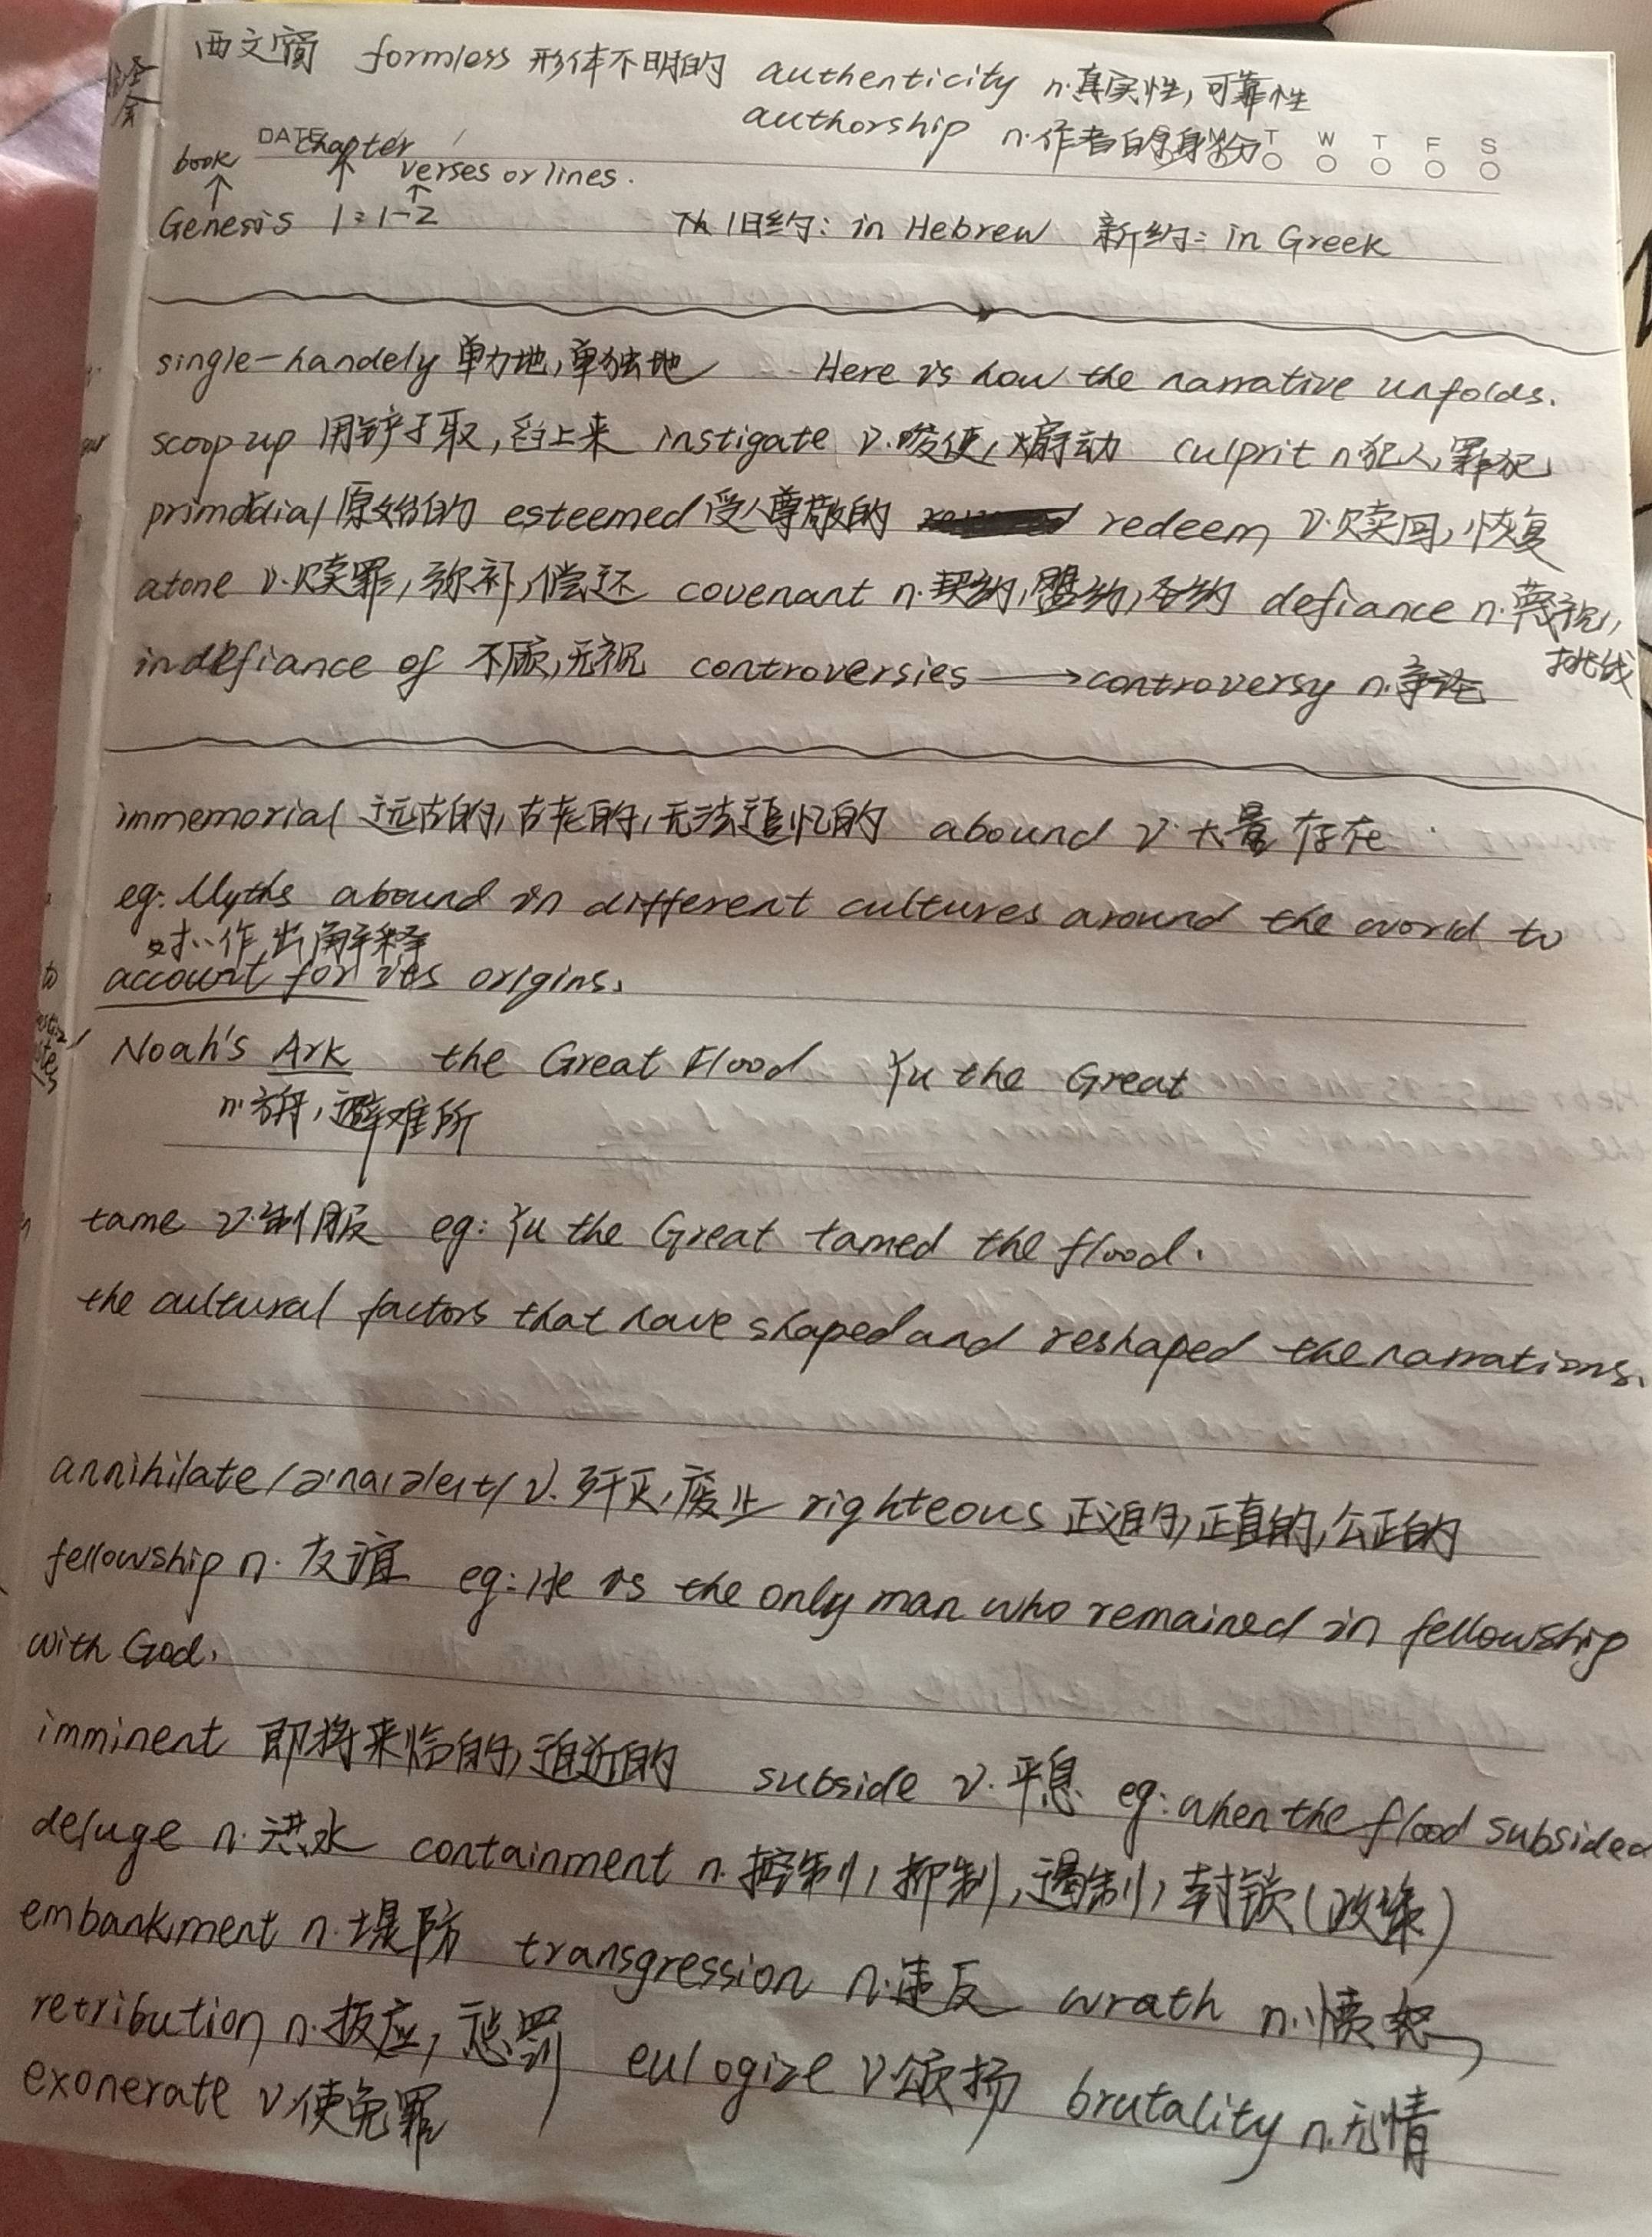 西文窗 formless 形体不明的 authenticity n.真实性,可靠性
authorship n.作者的身份
DATE T W T F S
book chapter verses or lines.
Genesis 1:1-2 旧约: in Hebrew 新约: in Greek
single-handely 单力地,单独地 Here is how the narrative unfolds.
scoop up 用铲子取,舀上来 instigate v.唆使,煽动 culprit n犯人,罪犯
primordial 原始的 esteemed 受人尊敬的 redeem v.赎回,恢复
atone v.赎罪,弥补,偿还 covenant n.契约,盟约,圣约 defiance n.蔑视,
挑战
in defiance of 不顾,无视 controversies → controversy n.争论
immemorial 远古的,古老的,无法追忆的 abound v.大量存在
eg: Myths abound in different cultures around the world to
对…作出解释
account for its origins.
Noah's Ark the Great Flood Yu the Great
n.方舟,避难所
tame v.制服 eg: Yu the Great tamed the flood.
the cultural factors that have shaped and reshaped the narrations.
annihilate /ə'naɪəleɪt/ v.歼灭,废止 righteous 正义的,正直的,公正的
fellowship n.友谊 eg: He is the only man who remained in fellowship
with God.
imminent 即将来临的,迫近的 subside v.平息 eg: when the flood subsided
deluge n.洪水 containment n.控制,抑制,遏制,封锁(政策)
embankment n.堤防 transgression n.违反 wrath n.愤怒
retribution n.报应,惩罚 eulogize v颂扬 brutality n.无情
exonerate v.使免罪